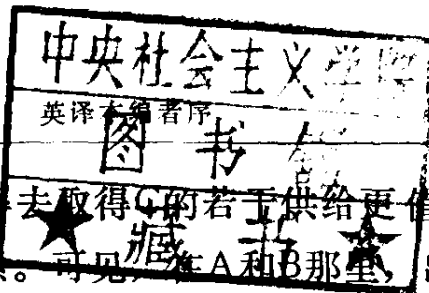 中央社会主义学院
英译本编者序
图书馆
去取得C的若干供给更值
藏书
。可见,在A和B那里,